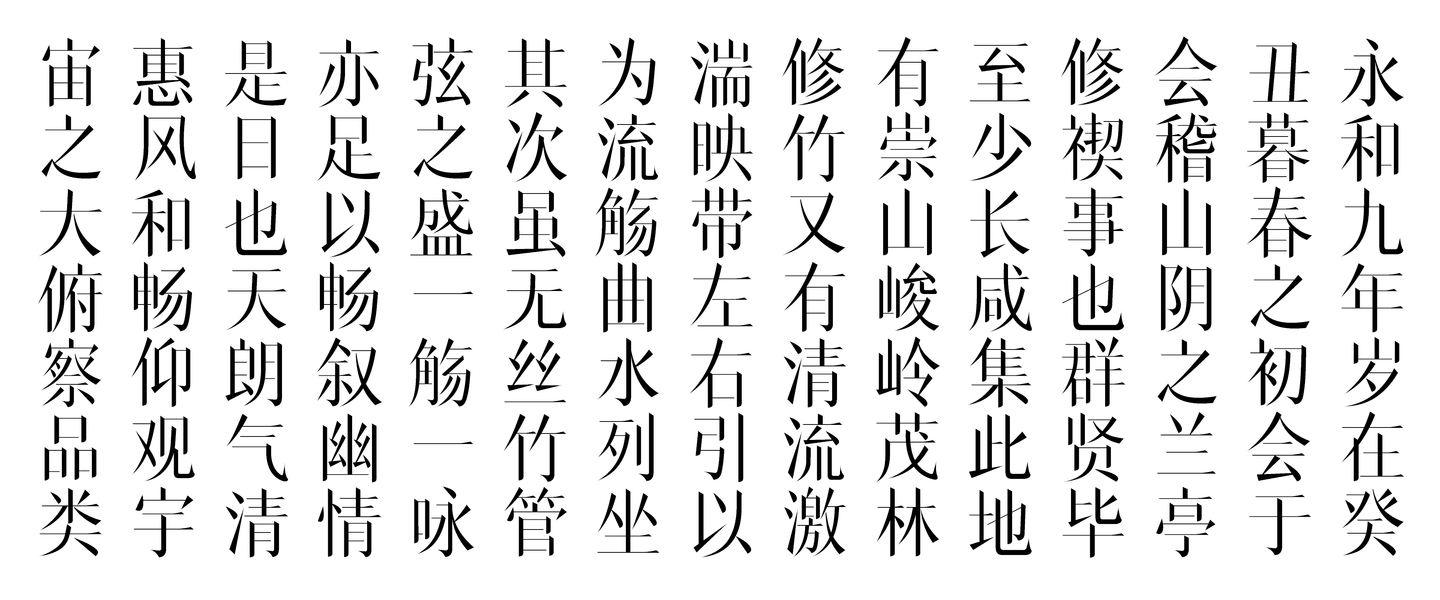 永和九年岁在癸
丑暮春之初会于
会稽山阴之兰亭
修禊事也群贤毕
至少长咸集此地
有崇山峻岭茂林
修竹又有清流激
湍映带左右引以
为流觞曲水列坐
其次虽无丝竹管
弦之盛一觞一咏
亦足以畅叙幽情
是日也天朗气清
惠风和畅仰观宇
宙之大俯察品类